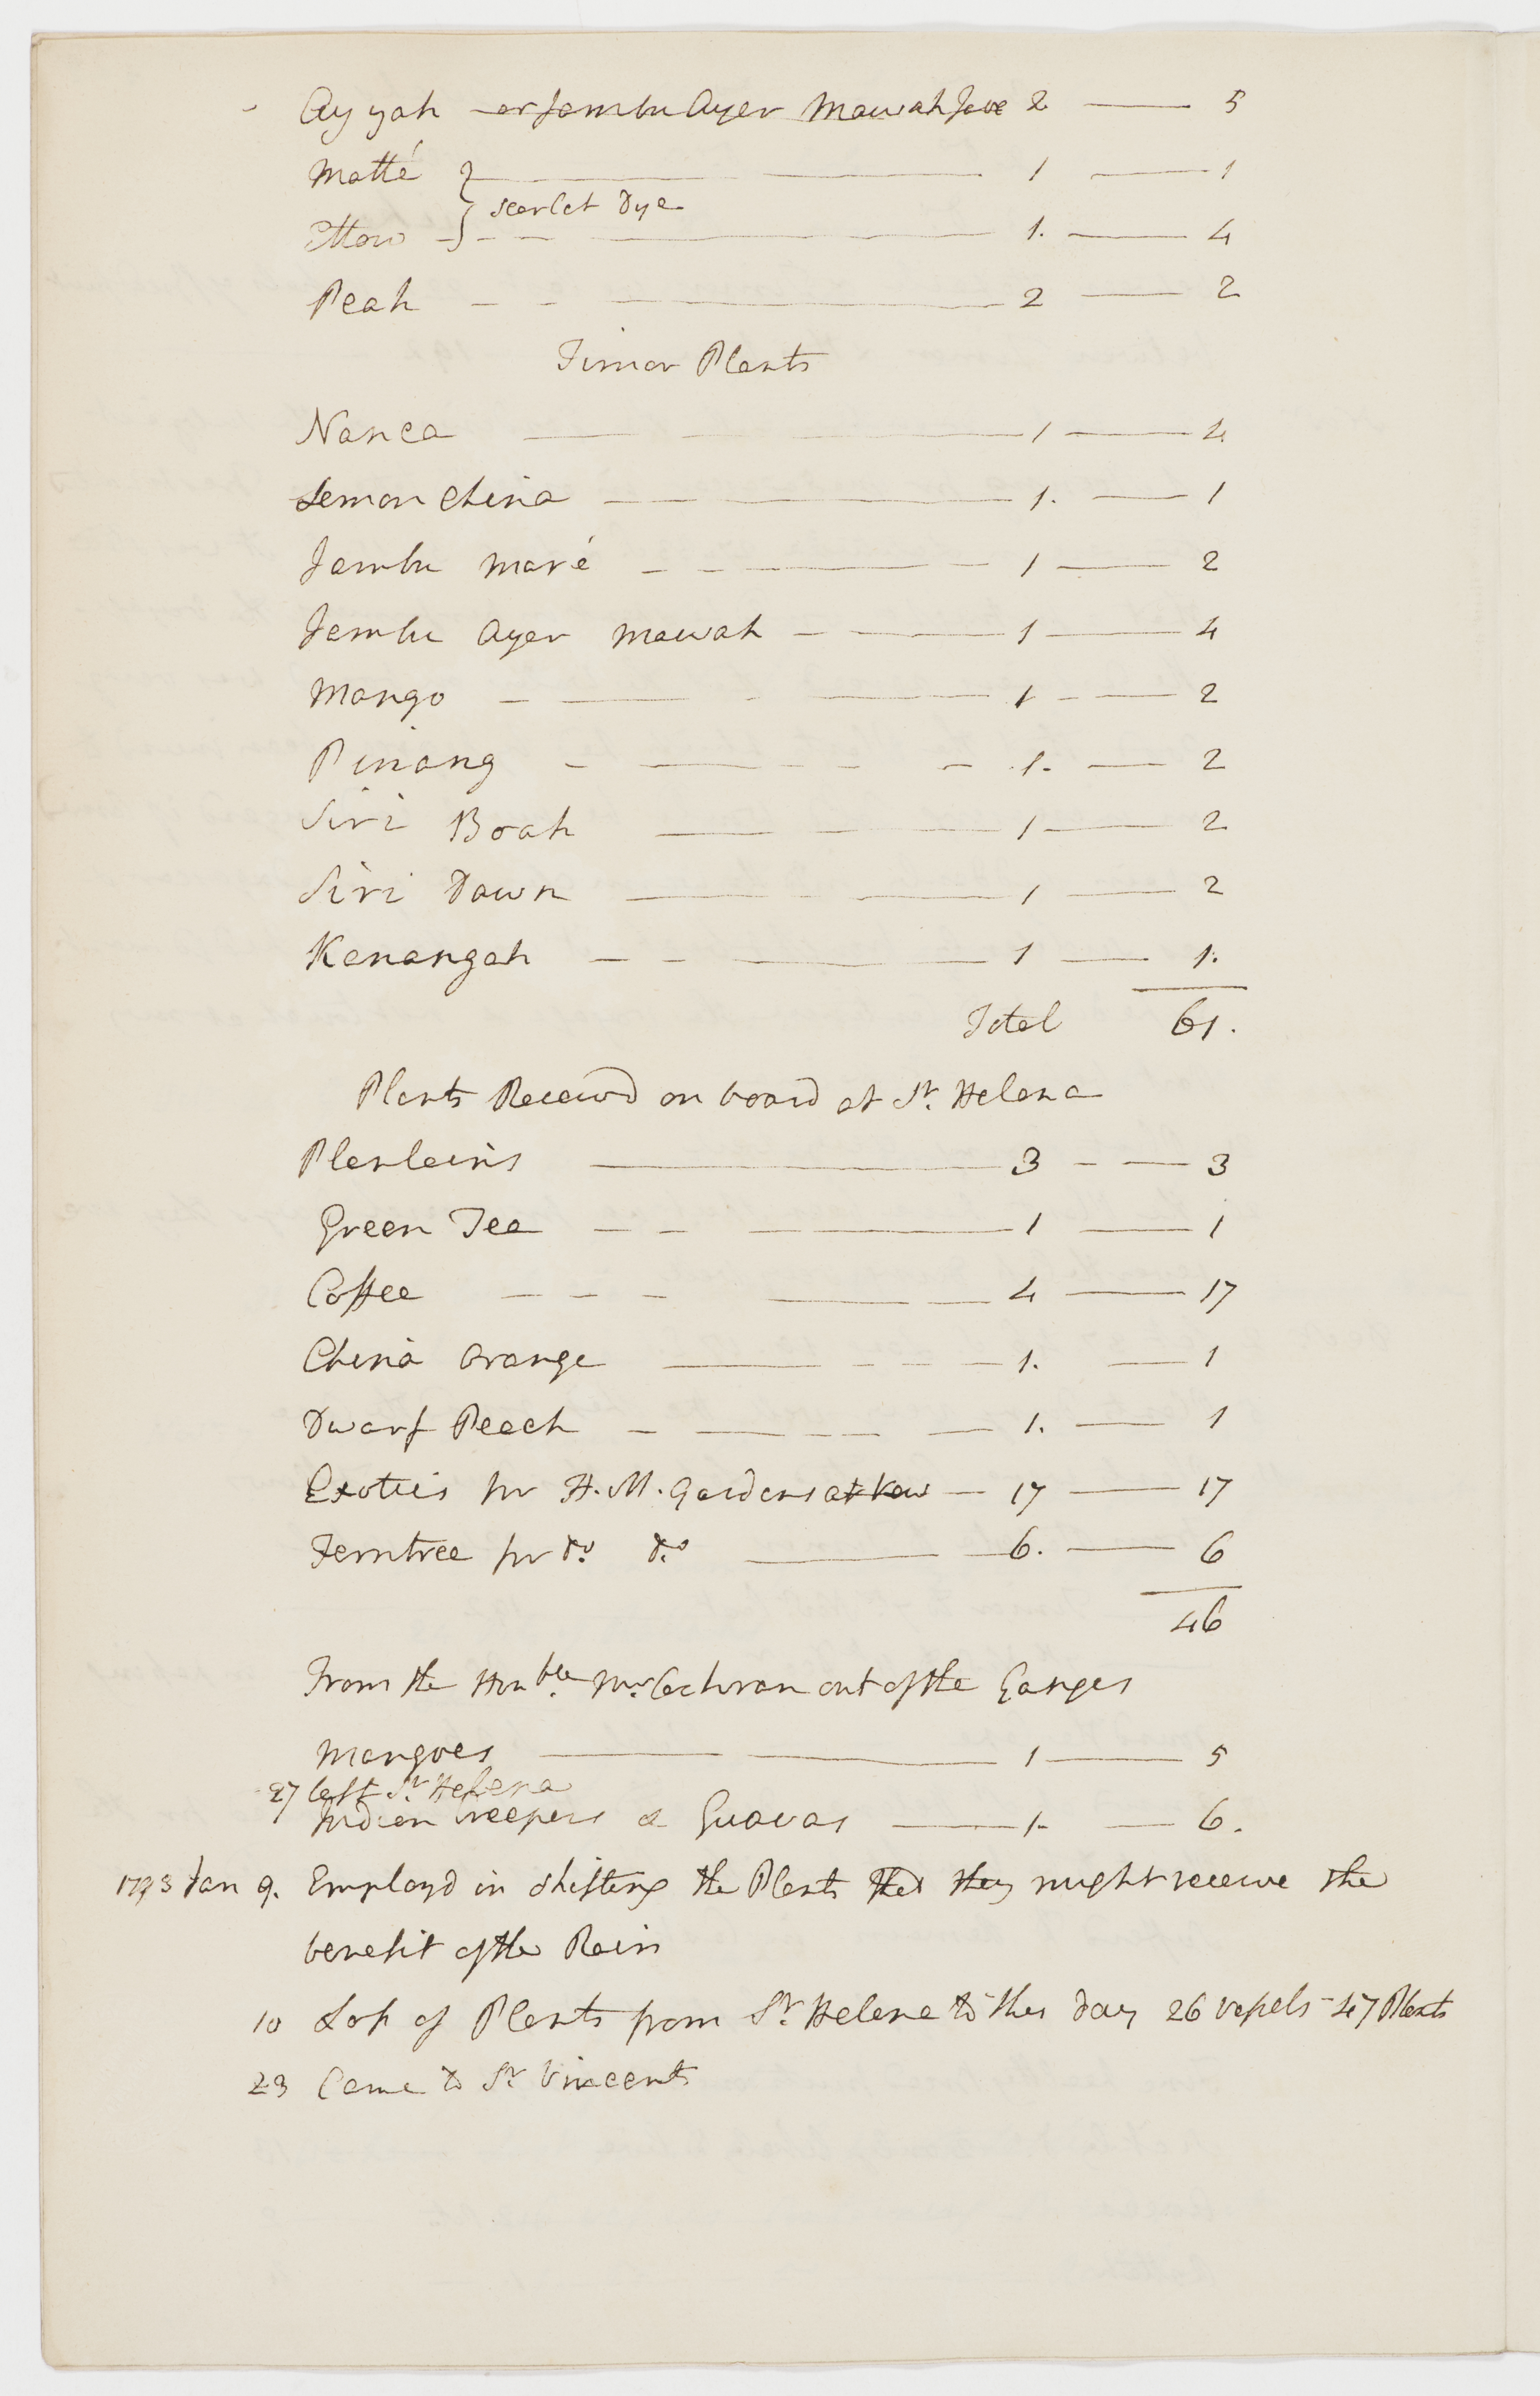 Ayyah — or Jambu Ayer Mawah Jave 2 — 5
Matté } — 1 — 1
scarlet Dye
Ettow } — 1. — 4
Peah — 2 — 2
Timor Plants
Nanca — 1 — 4
Lemon China — 1. — 1
Jambu Maré — 1 — 2
Jambu Ayer Mawah — 1 — 4
Mango — 1 — 2
Pinang — 1. — 2
Siri Boah — 1 — 2
Siri Down — 1 — 2
Kanangah — 1 — 1.
Total 61.
Plants Receivd on board at St. Helena
Plantains — 3 — 3
Green Tea — 1 — 1
Coffee — 4 — 17
China Orange — 1. — 1
Dwarf Peach — 1. — 1
Exotics for H. M. Gardens at Kew — 17 — 17
Ferntree for Do. Do. — 6. — 6
46
From the Honble. Mr. Cochran out of the Ganges
Mangoes — 1 — 5
27 left St. Helena
Indian creepers & Guavas — 1. — 6.
1793 Jan 9. Employd in shifting the Plants that they might receive the
benefit of the Rain
10 Loss of Plants from St. Helena to this day 26 vessels - 47 Plants
23 Came to St. Vincents